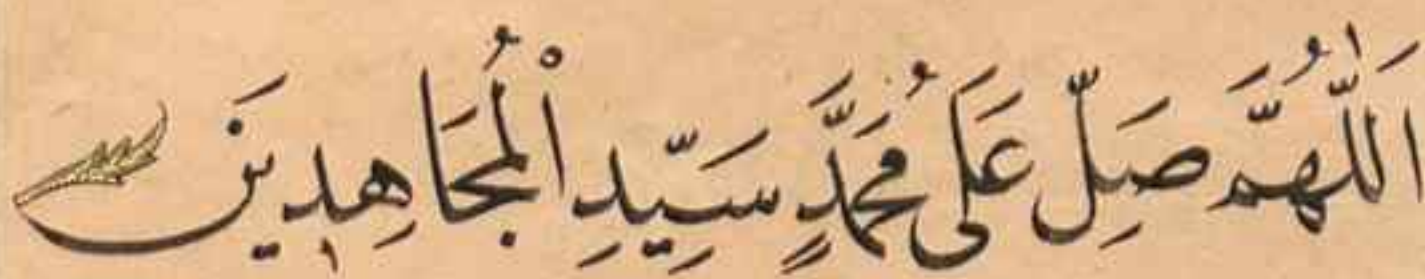 اَللّٰهُمَّ صَلِّ عَلٰى مُحَمَّدٍ سَيِّدِ اْلمُجَاهِدِينَ